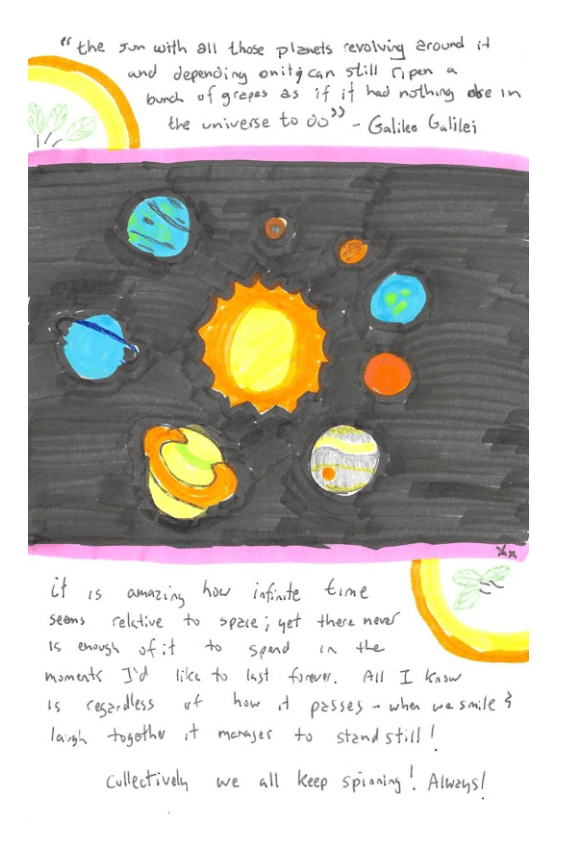 "the sun with all those planets revolving around it
and depending on it, can still ripen a
bunch of grapes as if it had nothing else in
the universe to do" - Galileo Galilei
it is amazing how infinite time
seems relative to space; yet there never
is enough of it to spend in the
moments I'd like to last forever. All I know
is regardless of how it passes - when we smile &
laugh together it manages to stand still!
Collectively we all keep spinning! Always!